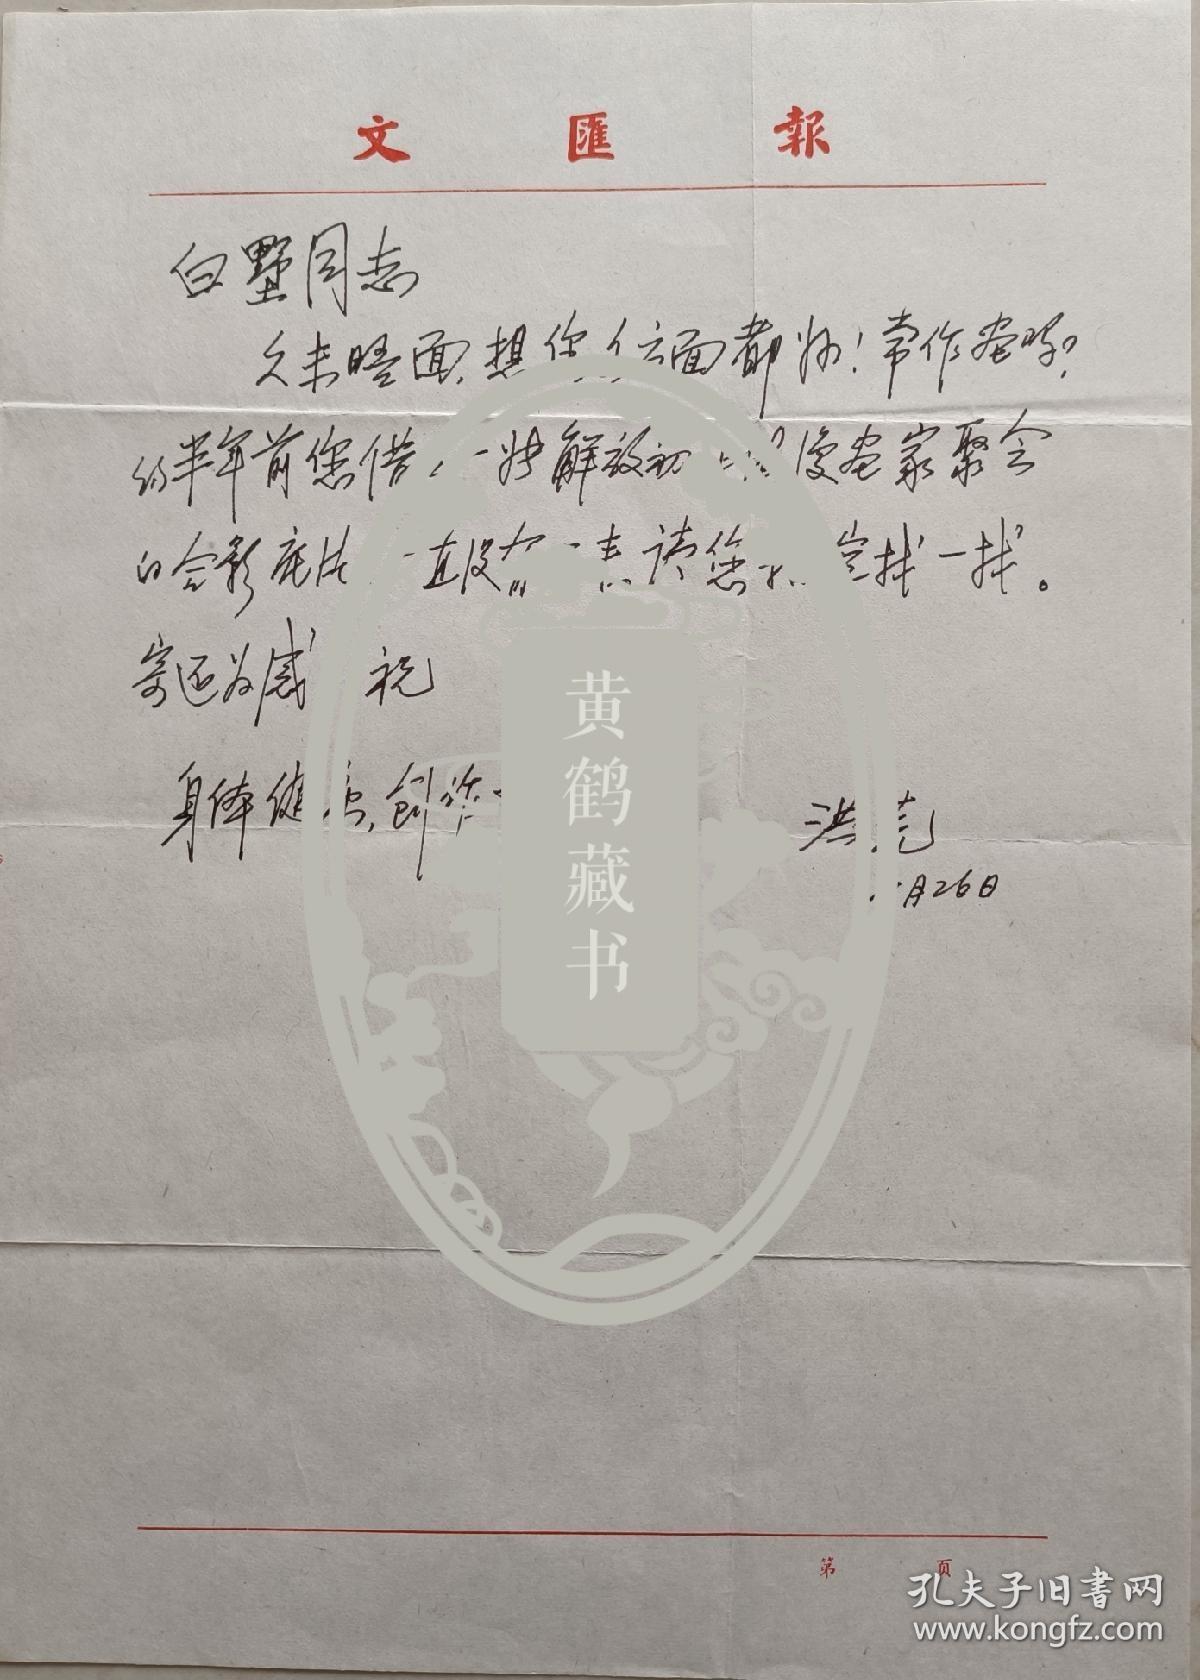 文匯報
白墅同志
久未晤面，想您 方面都好！常作画吗？
约半年前您借 一张解放初 漫画家聚会
的合影底片 一直没有 请您 找一找。
寄还为感 祝
身体健康，创作
洪荒
月26日
黄鹤藏书
第 页
孔夫子旧书网
www.kongfz.com